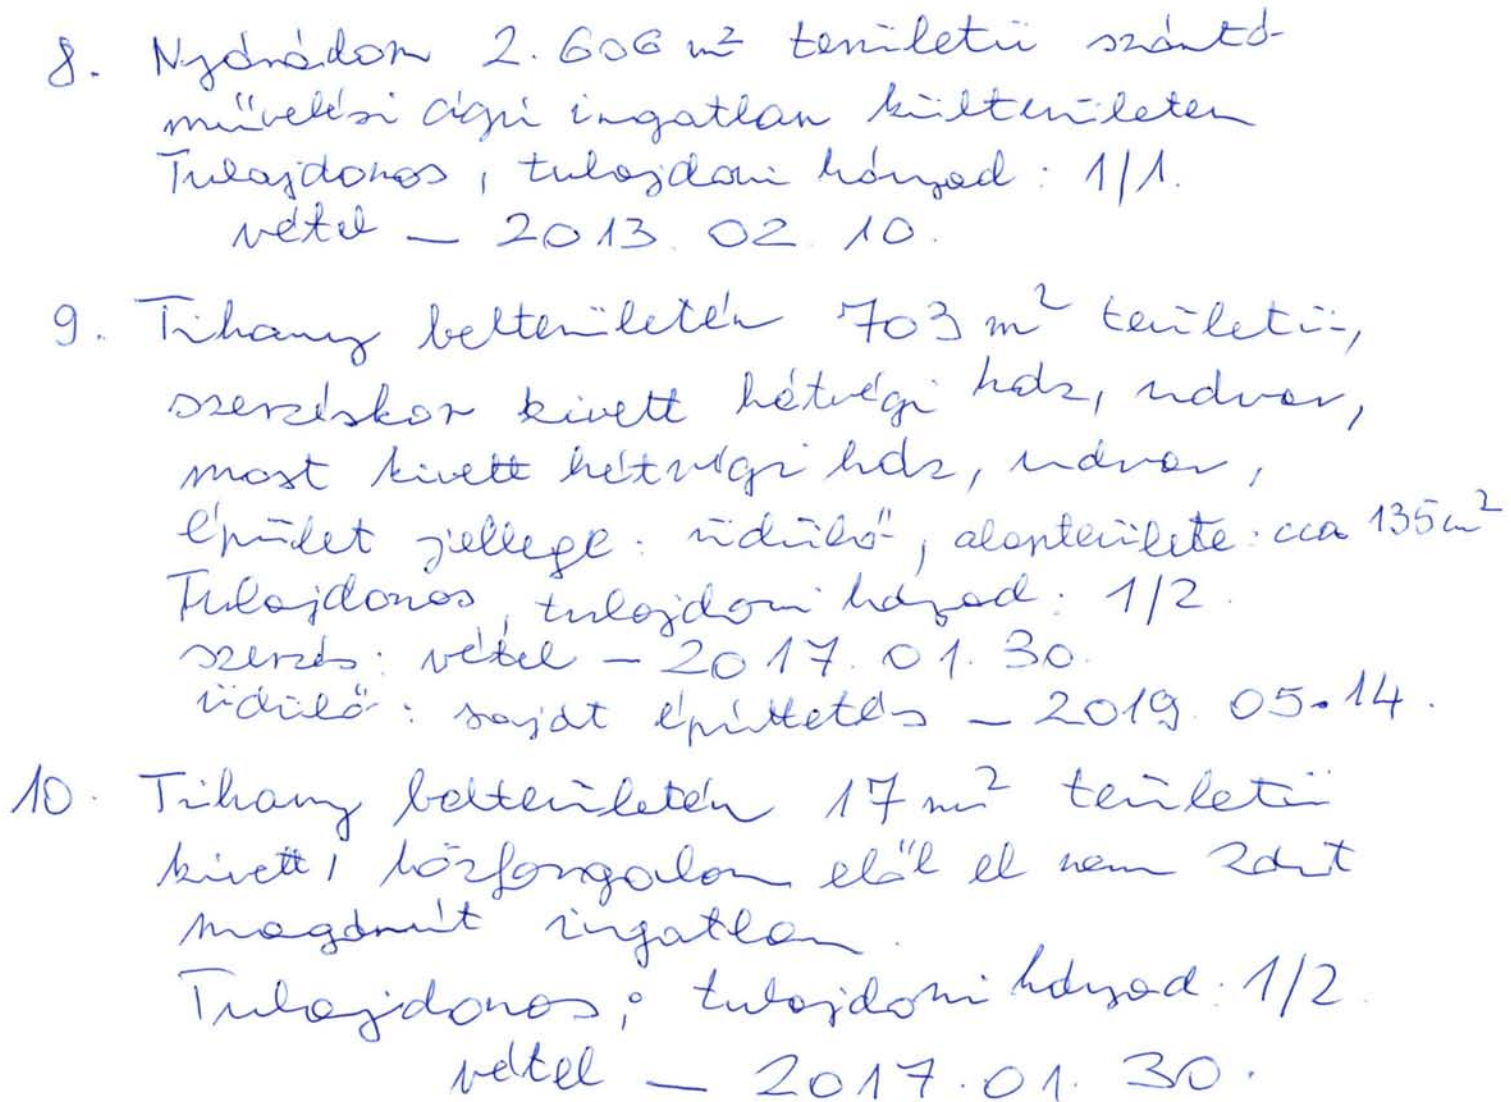 8. Nyárádon 2.606 m² területű szántó
művelési ágú ingatlan külterületen
Tulajdonos, tulajdoni hányad: 1/1.
vétel – 2013. 02. 10.
9. Tihany belterületén 703 m² területű,
szerzéskor kivett hétvégi ház, udvar,
most kivett hétvégi ház, udvar,
épület jellege: üdülő, alapterülete: cca 135 m²
Tulajdonos, tulajdoni hányad: 1/2.
szerzés: vétel – 2017. 01. 30.
üdülő: saját építtetés – 2019. 05. 14.
10. Tihany belterületén 17 m² területű
kivett, közforgalom elől el nem zárt
magánút ingatlan.
Tulajdonos; tulajdoni hányad: 1/2.
vétel – 2017. 01. 30.